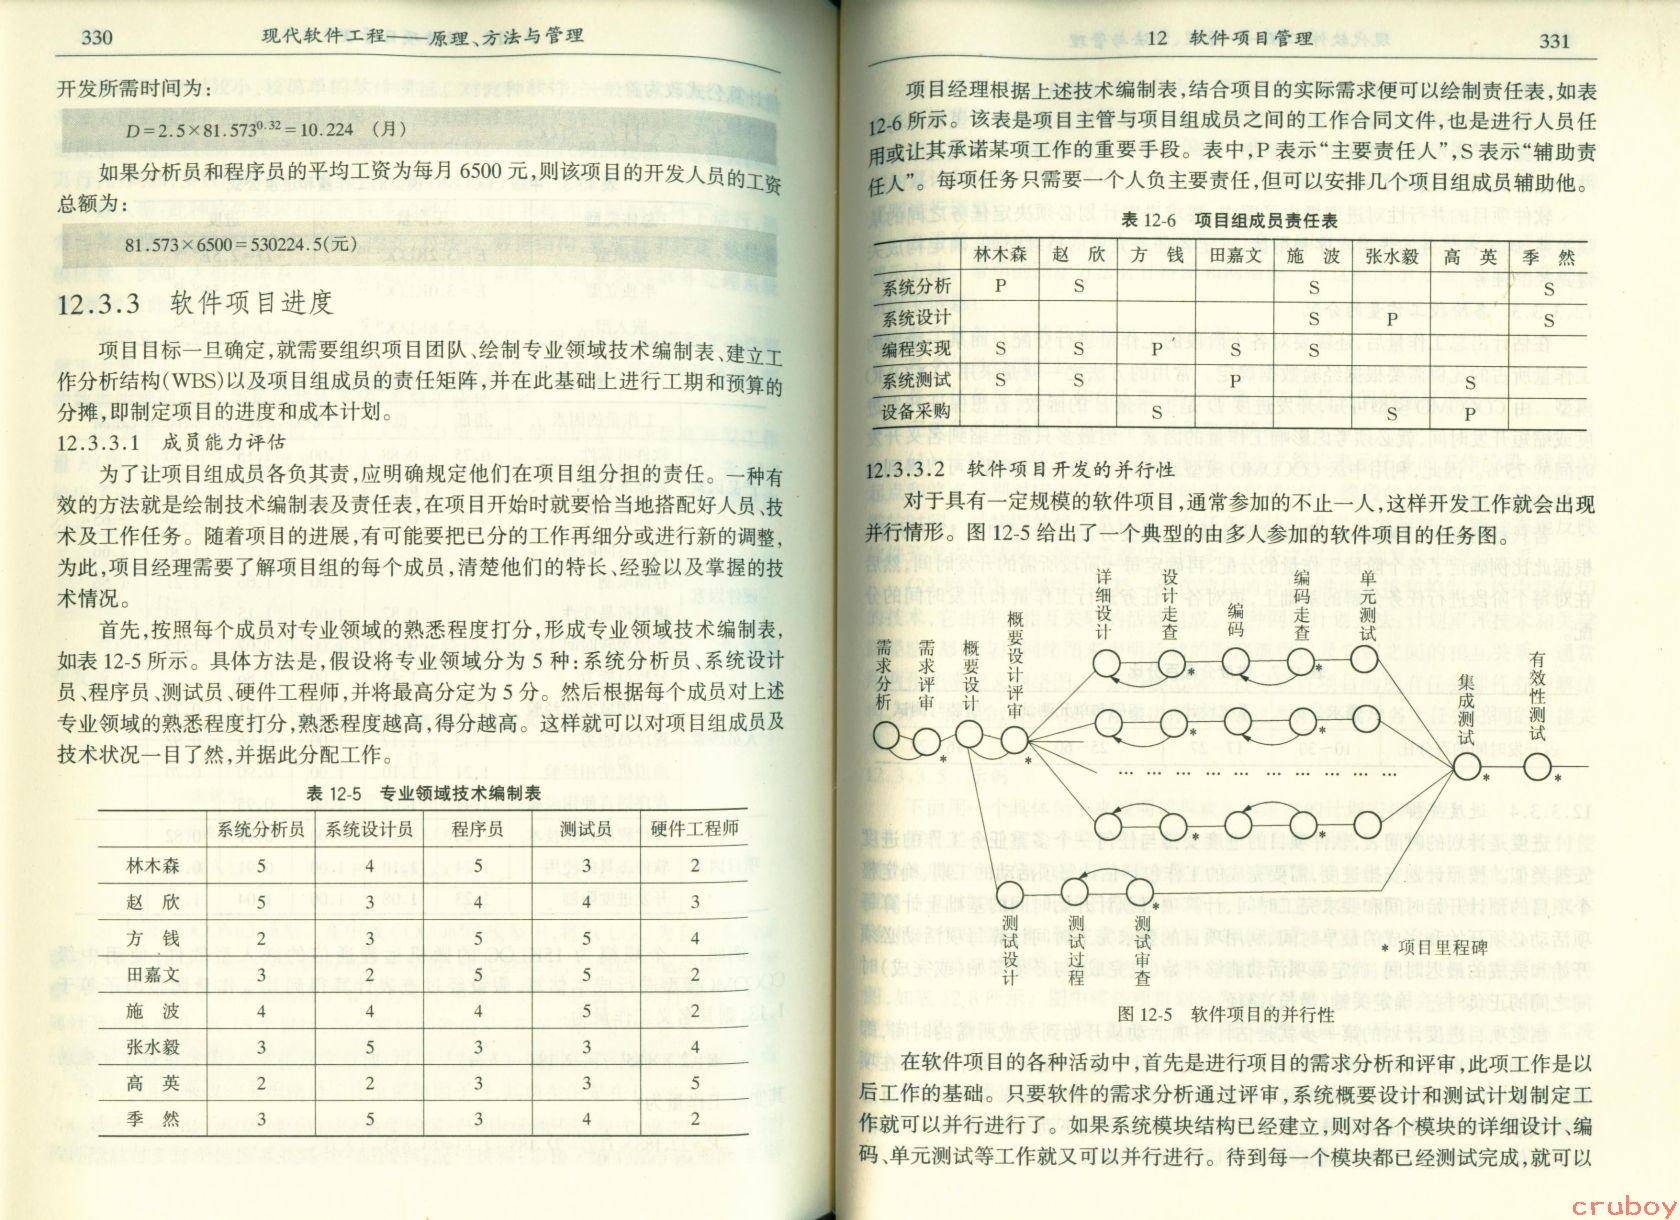 330 现代软件工程——原理、方法与管理
开发所需时间为:
D=2.5×81.573^0.32=10.224 (月)
如果分析员和程序员的平均工资为每月6500元,则该项目的开发人员的工资
总额为:
81.573×6500=530224.5(元)
12.3.3 软件项目进度
项目目标一旦确定,就需要组织项目团队、绘制专业领域技术编制表、建立工
作分析结构(WBS)以及项目组成员的责任矩阵,并在此基础上进行工期和预算的
分摊,即制定项目的进度和成本计划。
12.3.3.1 成员能力评估
为了让项目组成员各负其责,应明确规定他们在项目组分担的责任。一种有
效的方法就是绘制技术编制表及责任表,在项目开始时就要恰当地搭配好人员、技
术及工作任务。随着项目的进展,有可能要把已分的工作再细分或进行新的调整,
为此,项目经理需要了解项目组的每个成员,清楚他们的特长、经验以及掌握的技
术情况。
首先,按照每个成员对专业领域的熟悉程度打分,形成专业领域技术编制表,
如表12-5所示。具体方法是,假设将专业领域分为5种:系统分析员、系统设计
员、程序员、测试员、硬件工程师,并将最高分定为5分。然后根据每个成员对上述
专业领域的熟悉程度打分,熟悉程度越高,得分越高。这样就可以对项目组成员及
技术状况一目了然,并据此分配工作。
表12-5 专业领域技术编制表
系统分析员 系统设计员 程序员 测试员 硬件工程师
林木森 5 4 5 3 2
赵 欣 5 3 4 4 3
方 钱 2 3 5 5 4
田嘉文 3 2 5 5 2
施 波 4 4 4 5 2
张水毅 3 5 3 3 4
高 英 2 2 3 3 5
季 然 3 5 3 4 2
12 软件项目管理 331
项目经理根据上述技术编制表,结合项目的实际需求便可以绘制责任表,如表
12-6所示。该表是项目主管与项目组成员之间的工作合同文件,也是进行人员任
用或让其承诺某项工作的重要手段。表中,P表示“主要责任人”,S表示“辅助责
任人”。每项任务只需要一个人负主要责任,但可以安排几个项目组成员辅助他。
表12-6 项目组成员责任表
林木森 赵 欣 方 钱 田嘉文 施 波 张水毅 高 英 季 然
系统分析 P S S S
系统设计 S P S
编程实现 S S P S S
系统测试 S S P S
设备采购 S S P
12.3.3.2 软件项目开发的并行性
对于具有一定规模的软件项目,通常参加的不止一人,这样开发工作就会出现
并行情形。图12-5给出了一个典型的由多人参加的软件项目的任务图。
需求分析
需求评审
概要设计
概要设计评审
详细设计
设计走查
编码
编码走查
单元测试
集成测试
有效性测试
* * * * * *
* *
… … … … … … … … …
* *
*
测试设计
测试过程
测试审查
* 项目里程碑
图12-5 软件项目的并行性
在软件项目的各种活动中,首先是进行项目的需求分析和评审,此项工作是以
后工作的基础。只要软件的需求分析通过评审,系统概要设计和测试计划制定工
作就可以并行进行了。如果系统模块结构已经建立,则对各个模块的详细设计、编
码、单元测试等工作就又可以并行进行。待到每一个模块都已经测试完成,就可以
cruboy